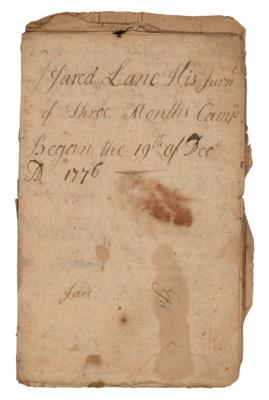 Jared Lane His Jurnl
of Three Months Camp
Began the 19th of Dec
AD 1776
Jare